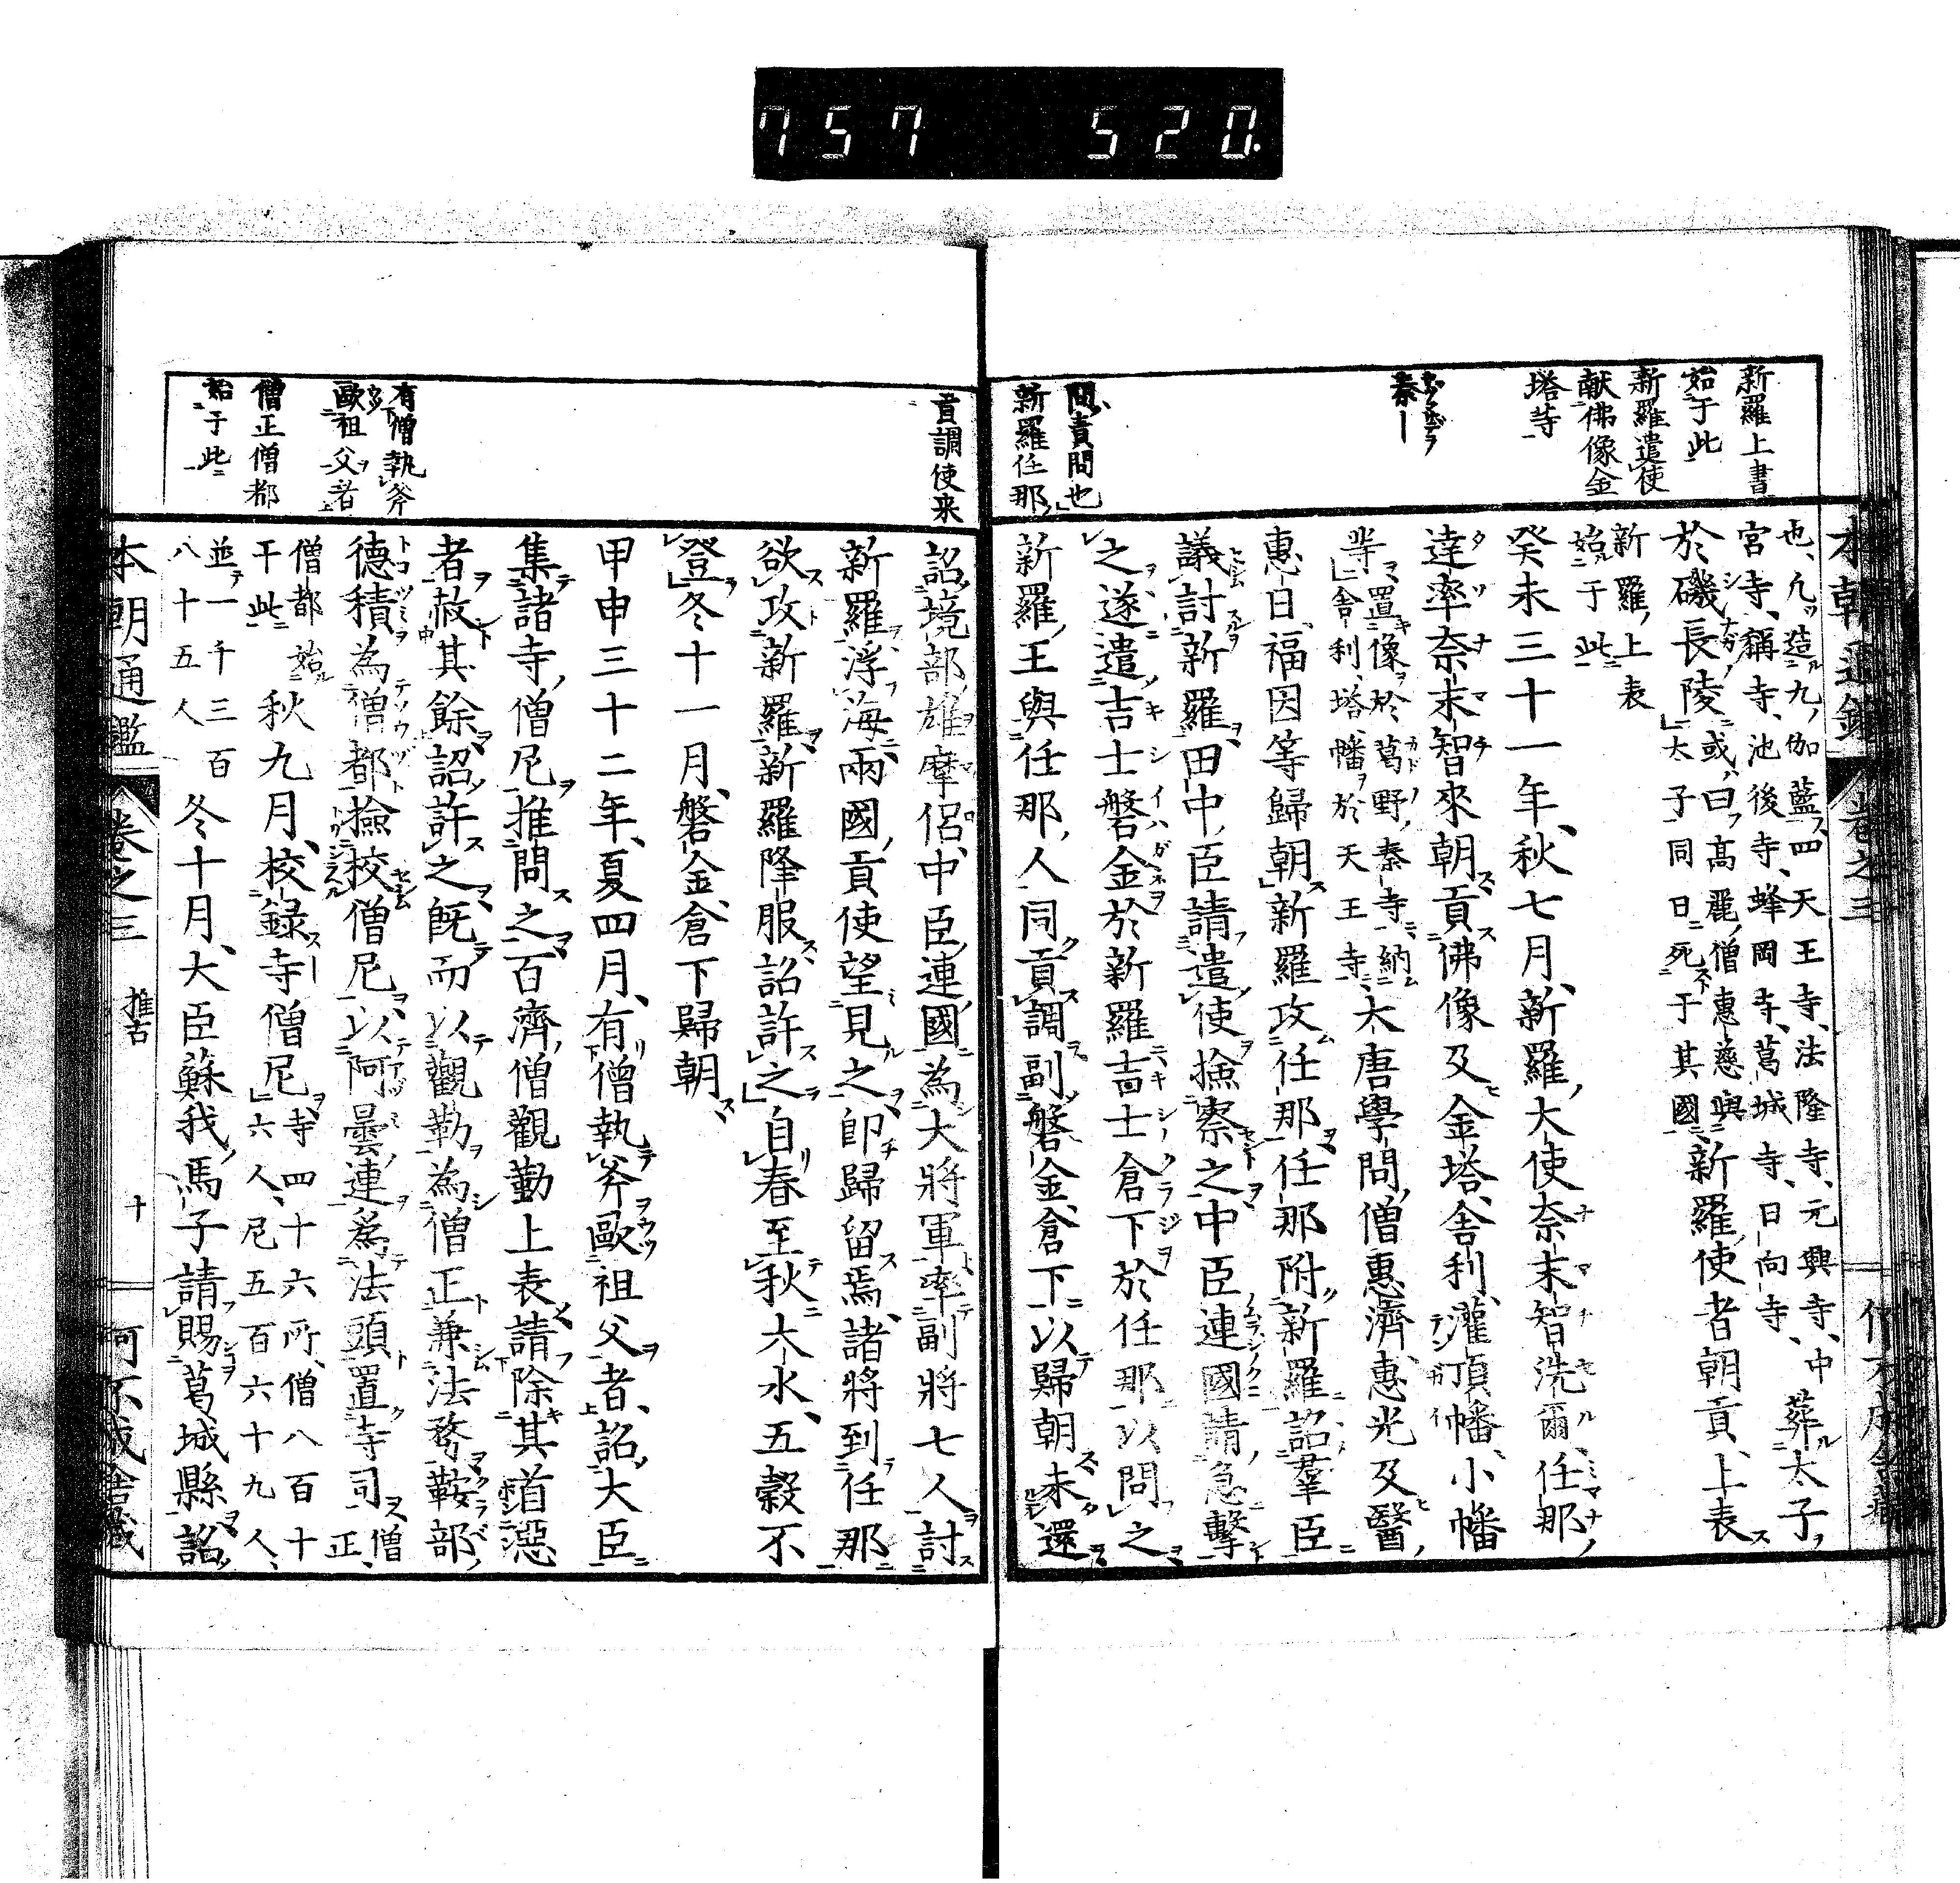 757 520.
新羅上書
始于此
新羅遣使
献佛像金
塔等
秦ー
問責問也
新羅任那
也、凢造九伽藍四天王寺、法隆寺、元興寺、中
宮寺、稱寺、池後寺、蜂岡寺、葛城寺、日向寺、葬太子
於磯長陵或曰高麗僧惠慈與
太子同日死于其國新羅使者朝貢、上表
新羅上表
始于此
癸未三十一年、秋七月、新羅大使奈末智洗爾、任那
達率奈末智來朝貢佛像及金塔、舎利、灌頂幡、小幡
等置像於葛野秦寺納
舎利、塔、幡於天王寺、大唐學問僧惠濟、惠光及醫
惠日、福因等歸朝新羅攻任那任那附新羅詔羣臣
議討新羅田中臣請遣使撿察之中臣連國請急擊
之遂遣吉士磐金於新羅吉士倉下於任那以問之
新羅王與任那人同貢調副磐金倉下以歸朝未還
貢調使来
有僧執斧
歐祖父者
僧正僧都
始于此
詔境部雄摩侶、中臣連國為大將軍率副將七人討
新羅浮海兩國貢使望見之即歸留焉、諸將到任那
欲攻新羅新羅降服詔許之自春至秋大水、五穀不
登冬十一月、磐金、倉下歸朝
甲申三十二年、夏四月、有僧執斧歐祖父者、詔大臣
集諸寺僧尼推問之百濟僧觀勤上表請除其首惡
者赦其餘詔許之既而以觀勒為僧正兼法務鞍部
德積為僧都撿校僧尼以阿曇連為法頭置寺司僧正、
僧都始
于此秋九月、校録寺僧尼寺四十六所、僧八百十
六人、尼五百六十九人、
並一千三百
八十五人冬十月、大臣蘇我馬子請賜葛城縣詔
本朝通鑑 卷之三 推古 十